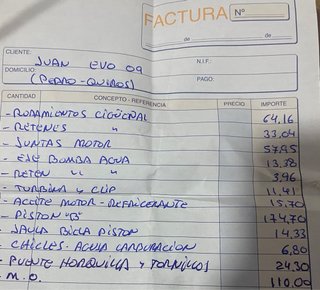 FACTURA Nº
de de
CLIENTE: JUAN EVO 09
N.I.F.:
DOMICILIO: (PEDRO-QUIROS)
PAGO:
CANTIDAD CONCEPTO - REFERENCIA PRECIO IMPORTE
- RODAMIENTOS CIGÜEÑAL 64,16
- RETENES " 33,04
- JUNTAS MOTOR 57,95
- EJE BOMBA AGUA 13,38
- RETEN " " 3,96
- TURBINA Y CLIP 11,41
- ACEITE MOTOR - REFRIGERANTE 15,70
- PISTON "B" 174,70
- JAULA BIELA PISTON 14,33
- CHICLES - AGUJA CARBURACION 6,80
- PUENTE HORQUILLA Y TORNILLOS 24,30
- M.O. 110,00